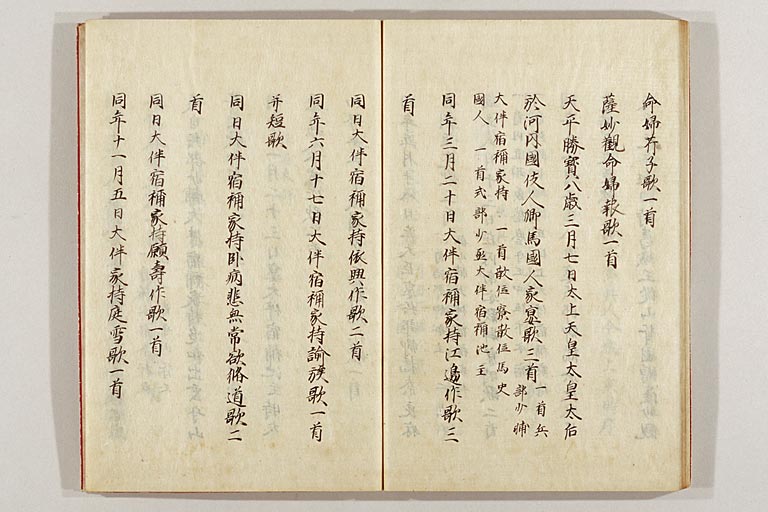 命婦芥子歌一首
薩妙觀命婦報歌一首
天平勝寳八歳三月七日太上天皇太皇太后
於河内國伎人郷馬國人家宴歌三首 一首兵部少輔
大伴宿祢家持 一首散位寮散位馬史
國人 一首式部少丞大伴宿祢池主
同年三月二十日大伴宿祢家持江邊作歌三
首
同日大伴宿祢家持依興作歌二首
同年六月十七日大伴宿祢家持諭族歌一首
并短歌
同日大伴宿祢家持卧病悲無常欲脩道歌二
首
同日大伴宿祢家持願壽作歌一首
同年十一月五日大伴家持庭雪歌一首